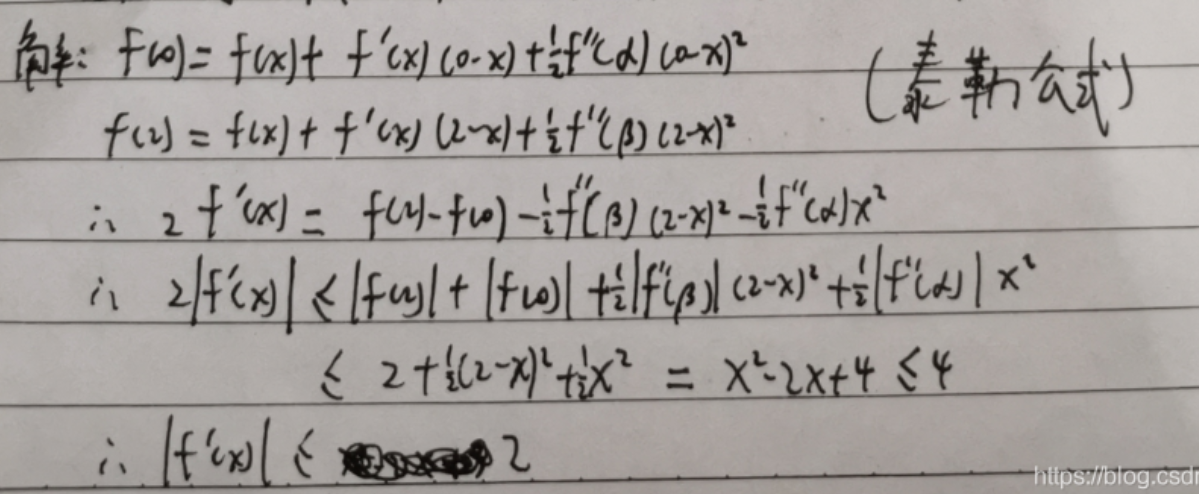 解答: f(0) = f(x) + f'(x)(0-x) + ½f''(α)(0-x)² (泰勒公式)
f(2) = f(x) + f'(x)(2-x) + ½f''(β)(2-x)²
∴ 2f'(x) = f(2) - f(0) - ½f''(β)(2-x)² - ½f''(α)x²
∴ 2|f'(x)| ≤ |f(2)| + |f(0)| + ½|f''(β)|(2-x)² + ½|f''(α)|x²
≤ 2 + ½(2-x)² + ½x² = x² - 2x + 4 ≤ 4
∴ |f'(x)| ≤ 2
https://blog.csd